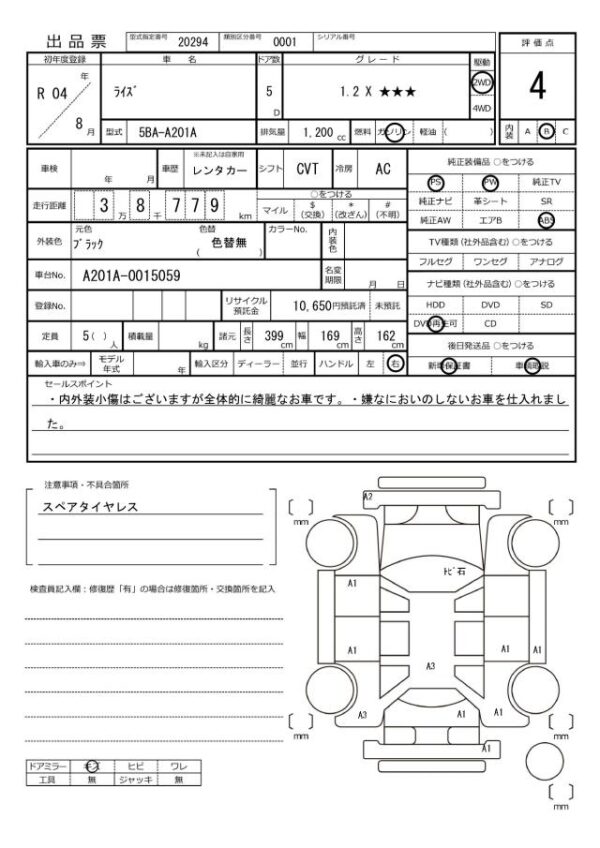 出品票
型式指定番号 20294 類別区分番号 0001 シリアル番号
初年度登録 車名 ドア数 グレード 駆動 評価点
R 04 年 8 月
ﾗｲｽﾞ
5 D
1.2 X ★★★
2WD
4WD
4
型式 5BA-A201A 排気量 1,200 cc 燃料 ガソリン 軽油 ( ) 内装 A B C
車検 年 月 車歴 ※未記入は自家用 レンタカー シフト CVT 冷房 AC
走行距離 3 万 8 千 779 km
○をつける
マイル $(交換) *(改ざん) #(不明)
外装色 元色 ﾌﾞﾗｯｸ 色替 色替無 ( ) カラーNo. 内装色
車台No. A201A-0015059 名変期限 月 日
登録No. リサイクル預託金 10,650円預託済 未預託
定員 5( )人 積載量 kg 諸元 長さ 399 cm 幅 169 cm 高さ 162 cm
輸入車のみ⇒ モデル年式 年 輸入区分 ディーラー 並行 ハンドル 左 右
純正装備品 ○をつける
PS PW 純正TV
純正ナビ 革シート SR
純正AW エアB ABS
TV種類 (社外品含む) ○をつける
フルセグ ワンセグ アナログ
ナビ種類 (社外品含む) ○をつける
HDD DVD SD
DVD再生可 CD
後日発送品 ○をつける
新車保証書 車輌取説
セールスポイント
・内外装小傷はございますが全体的に綺麗なお車です。・嫌なにおいのしないお車を仕入れまし
た。
注意事項・不具合箇所
スペアタイヤレス
検査員記入欄：修復歴「有」の場合は修復箇所・交換箇所を記入
ドアミラー キズ ヒビ ワレ
工具 無 ジャッキ 無
A2
[ ] mm
[ ] mm
ﾄﾋﾞ石
A1
A1 A1 A1
A3
A3 A1 A1
[ ] mm
[ ] mm
A1
[ ] mm